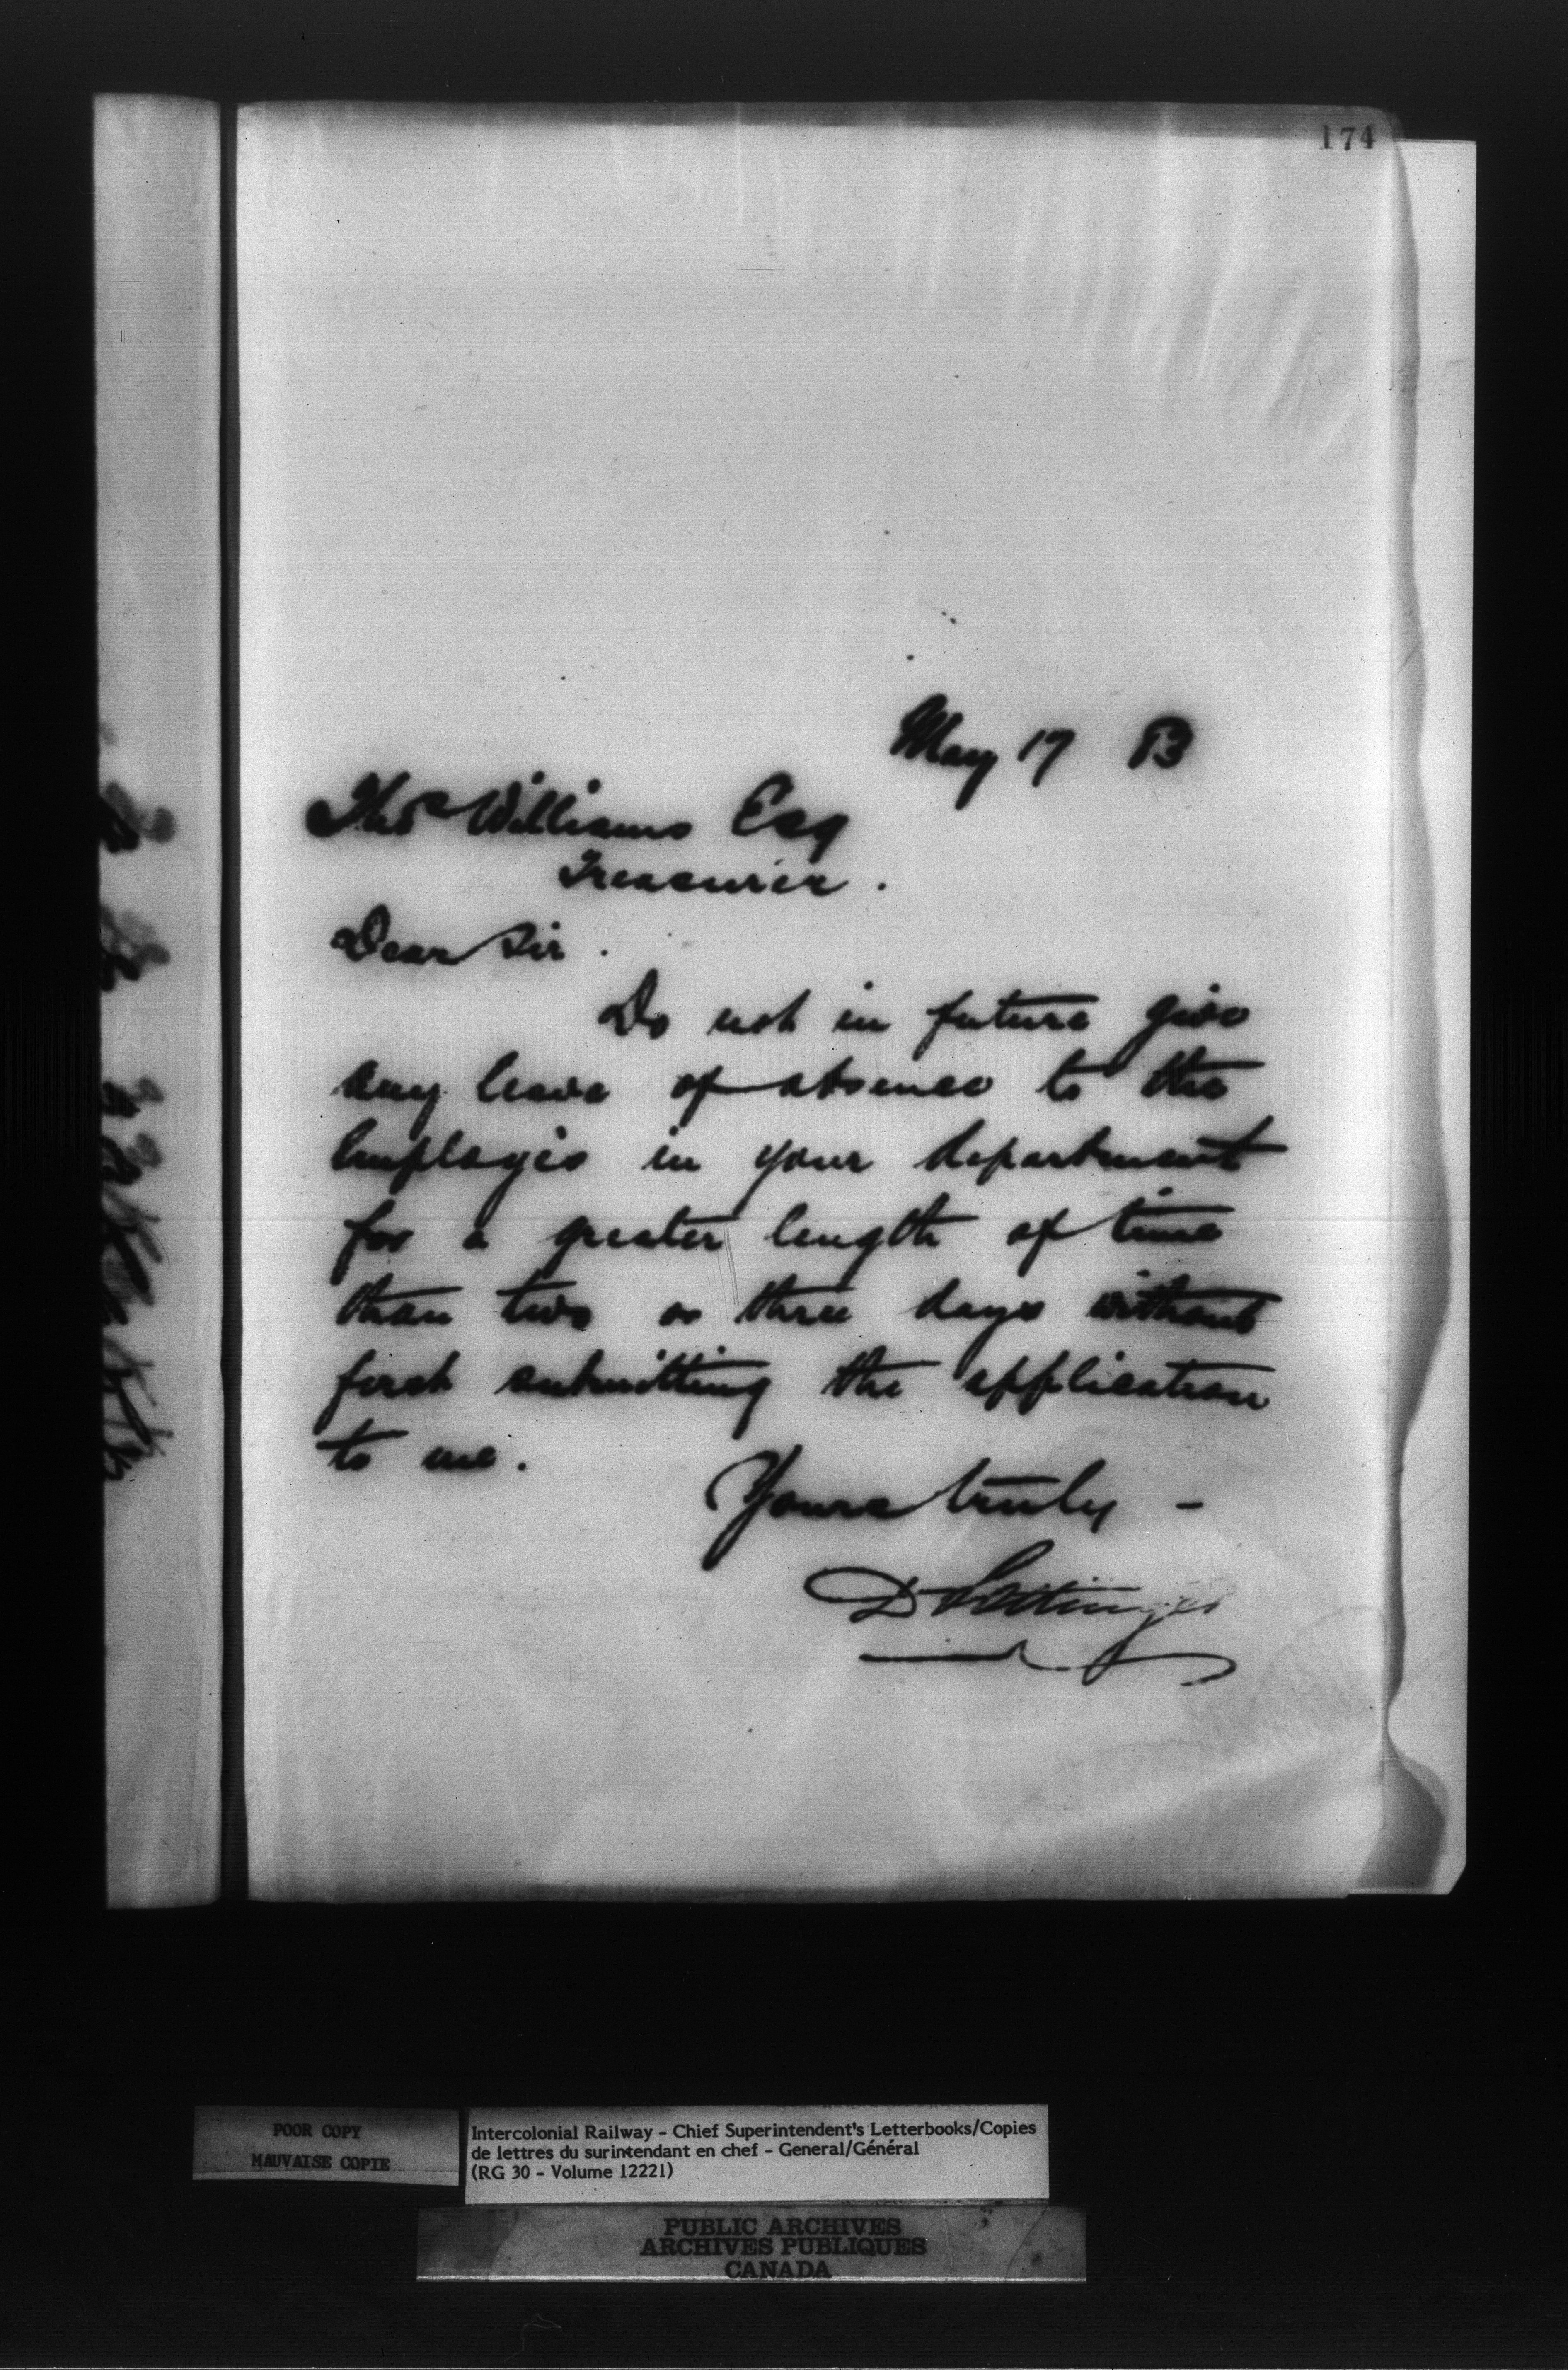 174
May 17 83
Thos Williams Esq
Treasurer.
Dear Sir.
Do not in future give
any leave of absence to the
employés in your department
for a greater length of time
than two or three days without
first submitting the application
to me.
Yours truly -
D Pottinger
POOR COPY
MAUVAISE COPIE
Intercolonial Railway - Chief Superintendent's Letterbooks/Copies
de lettres du surintendant en chef - General/Général
(RG 30 - Volume 12221)
PUBLIC ARCHIVES
ARCHIVES PUBLIQUES
CANADA